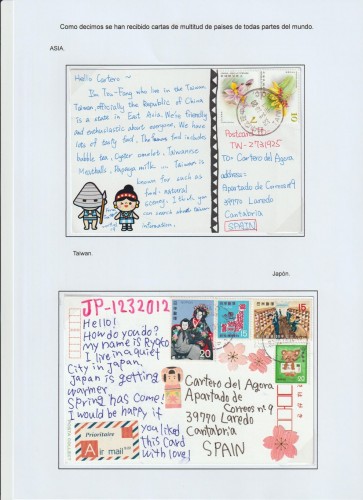 Como decimos se han recibido cartas de multitud de paises de todas partes del mundo.
ASIA.
Hello Cartero~
I'm Tzu-Fang who live in the Taiwan
Taiwan, officially the Republic of China
is a state in East Asia. We're friendly
and enthusiastic about everyone. We have
lots of tasty food. The famous food includes
bubble tea, Oyster omelet, Taiwanese
Meatballs, Papaya milk .... Taiwan is
known for such as
food & natural
scenery. I think you
can search about Taiwan
information.
Postcard ID:
TW-2731925
TO: Cartero del Agora
address:
Apartado de Correos nº9
39770 Laredo
Cantabria
SPAIN
Taiwan.
Japón.
JP-1232012
Hello!
How do you do?
My name is Ryoko
I live in a quiet
City in Japan.
Japan is getting
warmer
Spring has come!
I would be happy if
you liked
this card
with love!
Prioritaire
Air mail
20
15
15
20
Cartero del Agora
Apartado de
Correos nº 9
39770 Laredo
Cantabria
SPAIN